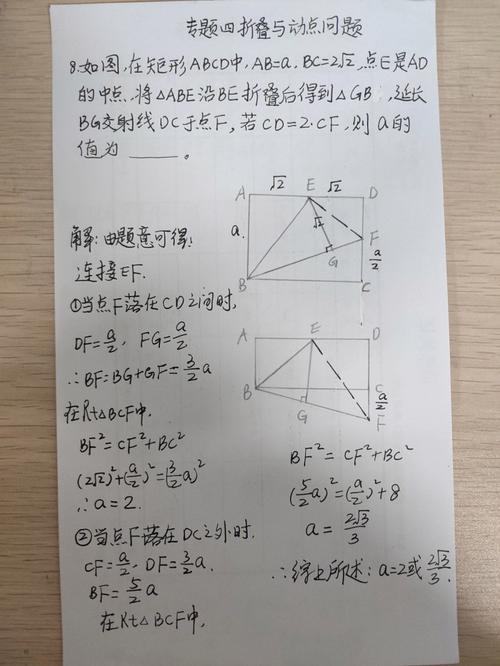 专题四折叠与动点问题
8.如图,在矩形ABCD中,AB=a,BC=2√2,点E是AD
的中点,将△ABE沿BE折叠后得到△GB ,延长
BG交射线DC于点F,若CD=2·CF,则a的
值为 ____ 。
A √2 E √2 D
a
√2
F
G
a/2
B C
解:由题意可得:
连接EF.
①当点F落在CD之间时,
DF=a/2, FG=a/2
∴BF=BG+GF=3/2 a
在Rt△BCF中.
BF²=CF²+BC²
(2√2)²+(a/2)²=(3/2 a)²
∴a=2.
②当点F落在DC之外时.
CF=a/2, DF=3/2 a.
BF=5/2 a
在Rt△BCF中,
A E D
B C
a/2
G F
BF²=CF²+BC²
(5/2 a)²=(a/2)²+8
a=2√3/3
∴综上所述:a=2或2√3/3.